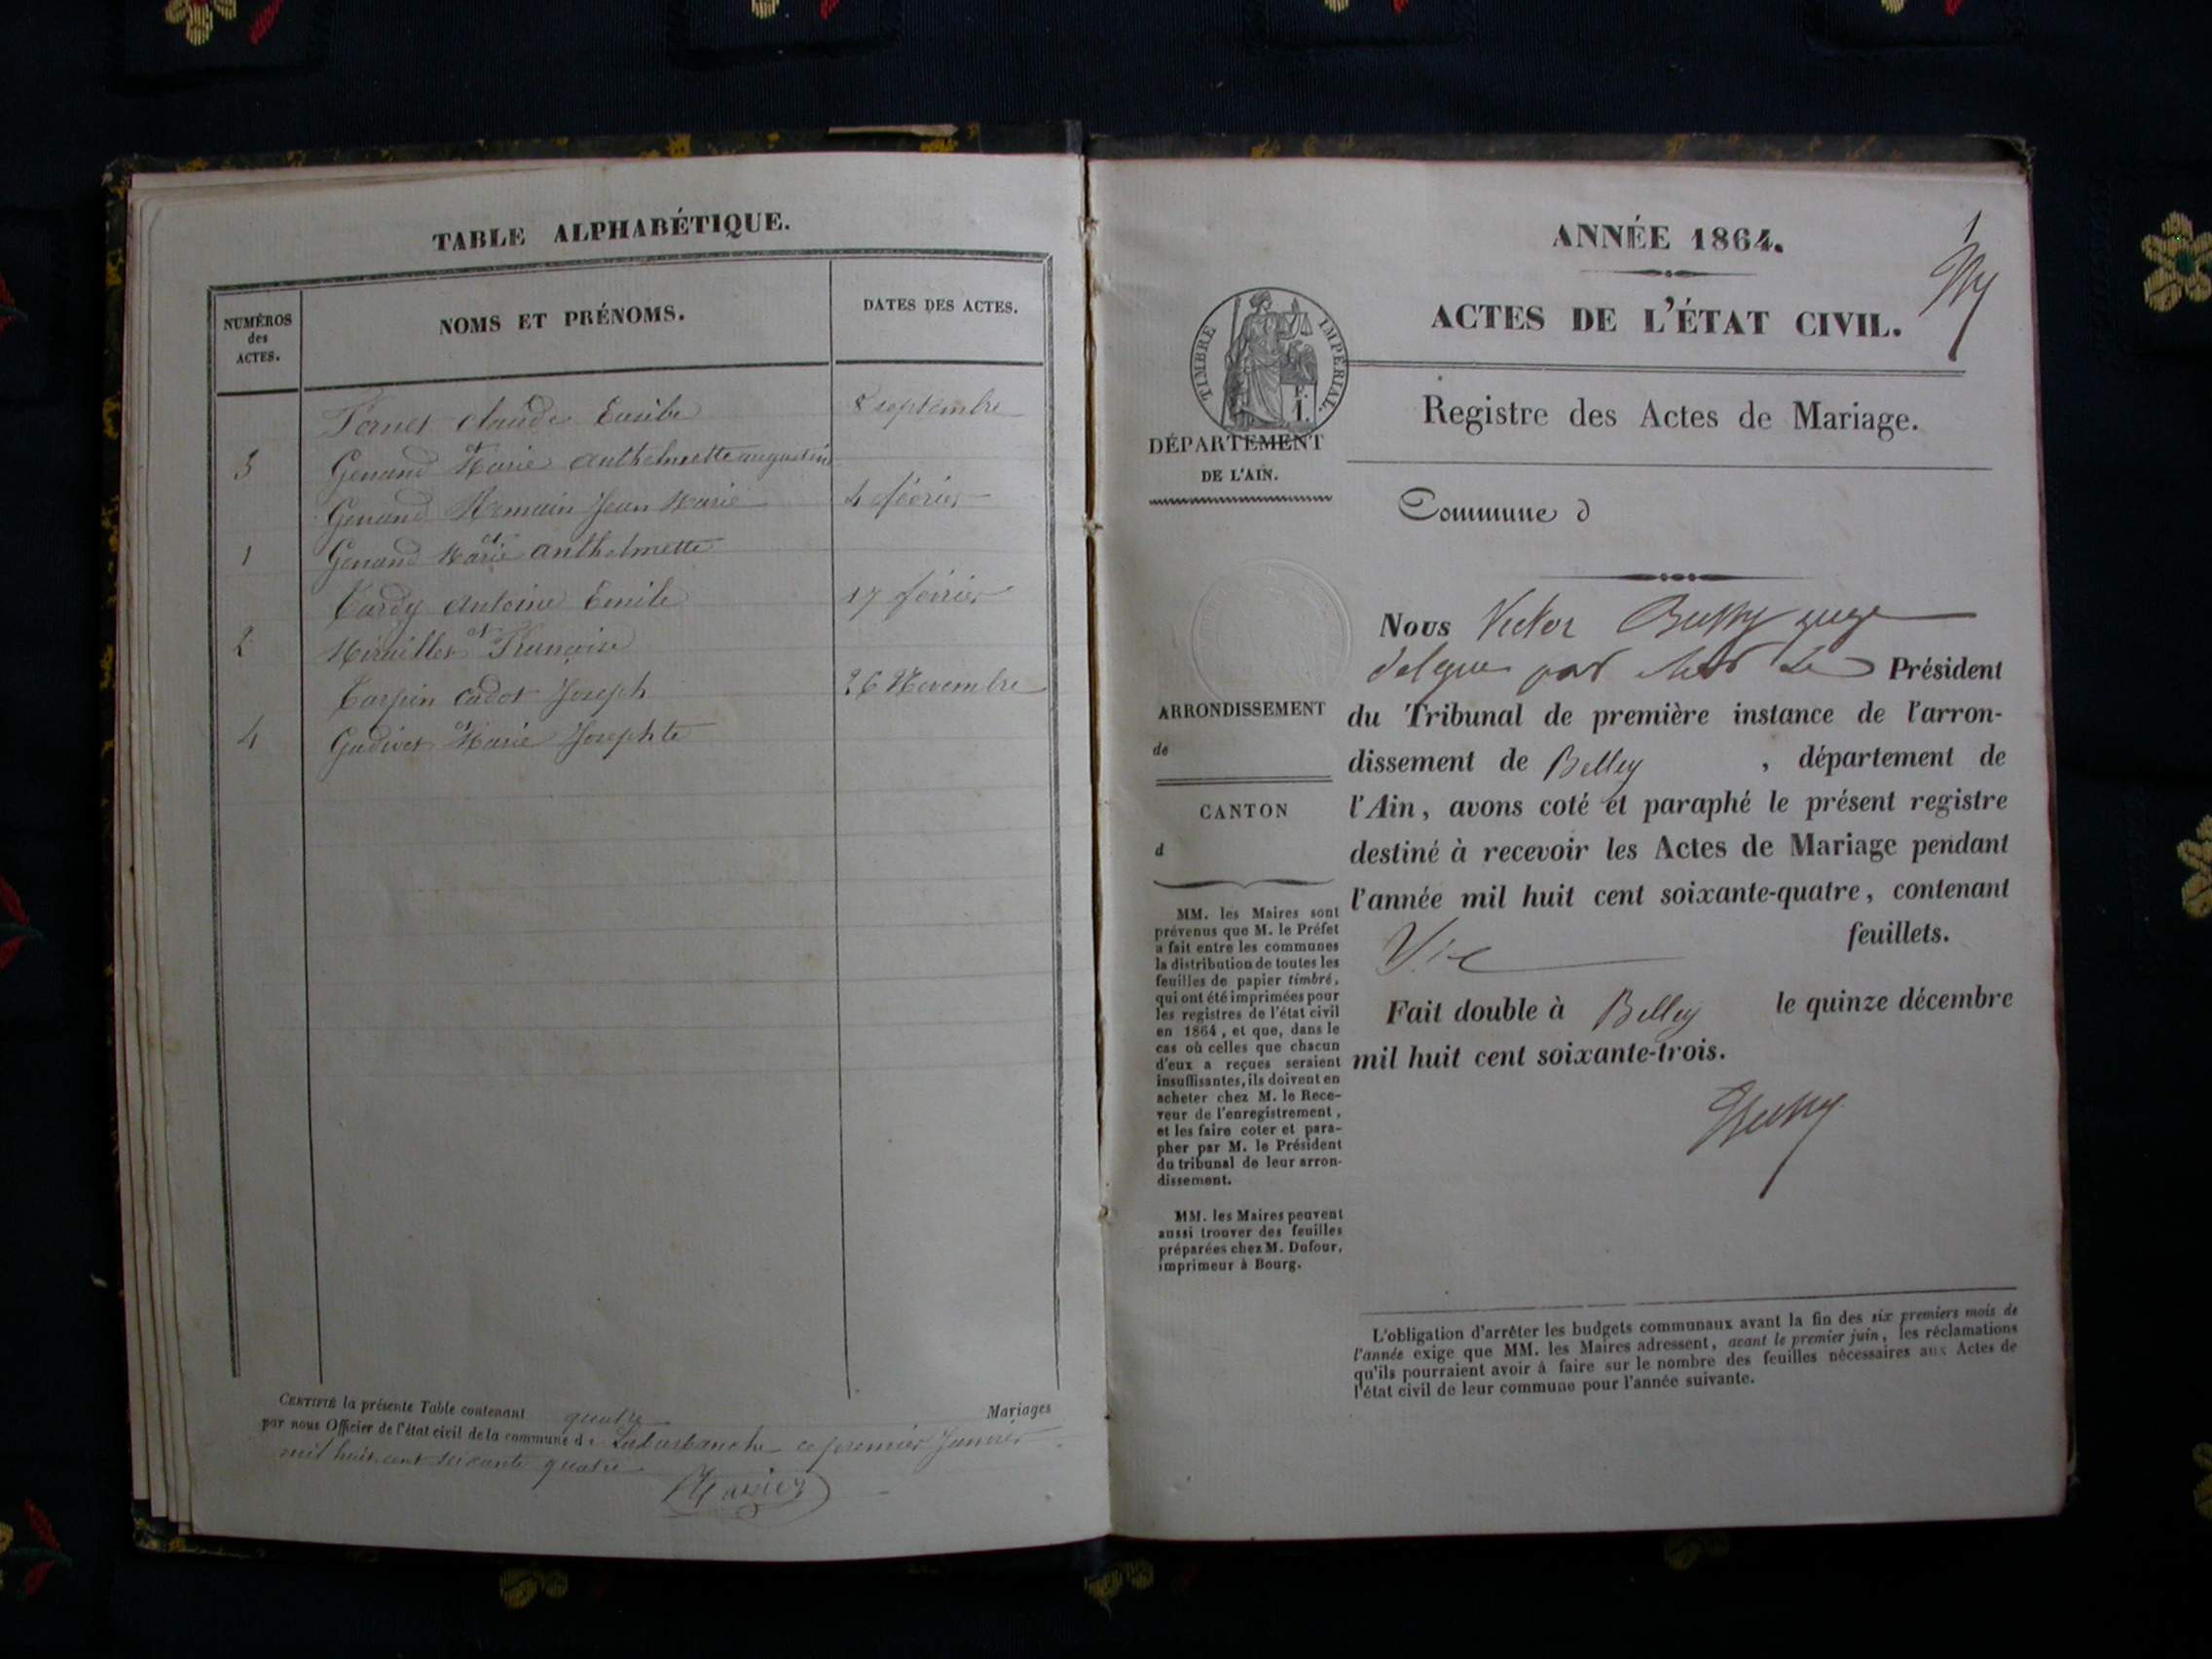 TABLE ALPHABÉTIQUE.
NUMÉROS
des
ACTES.
NOMS ET PRÉNOMS.
DATES DES ACTES.
Fornet Claude Emile
8 septembre
et
3
Genand Marie Anthelmette augustine
Genand Romain Jean Marie
4 février
et
1
Genand Marie Anthelmette
Tardy Antoine Emile
17 février
et
2
Françoise
Carpin Cadot Joseph
26 Novembre
et
4
Gudivet Marie Josephte
CERTIFIÉ la présente Table contenant quatre Mariages
par nous Officier de l'état civil de la commune de Laburbanche ce premier Janvier
mil huit cent soixante quatre
ANNÉE 1864.
1
ACTES DE L'ÉTAT CIVIL.
TIMBRE IMPÉRIAL.
F.
1.
DÉPARTEMENT
DE L'AIN.
Registre des Actes de Mariage.
Commune d
ARRONDISSEMENT
de
CANTON
d
MM. les Maires sont
prévenus que M. le Préfet
a fait entre les communes
la distribution de toutes les
feuilles de papier timbré,
qui ont été imprimées pour
les registres de l'état civil
en 1864, et que, dans le
cas où celles que chacun
d'eux a reçues seraient
insuffisantes, ils doivent en
acheter chez M. le Rece-
veur de l'enregistrement,
et les faire coter et para-
pher par M. le Président
du tribunal de leur arron-
dissement.
MM. les Maires peuvent
aussi trouver des feuilles
préparées chez M. Dufour,
imprimeur à Bourg.
Nous Victor juge
délégué par Président
du Tribunal de première instance de l'arron-
dissement de Belley , département de
l'Ain, avons coté et paraphé le présent registre
destiné à recevoir les Actes de Mariage pendant
l'année mil huit cent soixante-quatre, contenant
feuillets.
Fait double à Belley le quinze décembre
mil huit cent soixante-trois.
L'obligation d'arrêter les budgets communaux avant la fin des six premiers mois de
l'année exige que MM. les Maires adressent, avant le premier juin, les réclamations
qu'ils pourraient avoir à faire sur le nombre des feuilles nécessaires aux Actes de
l'état civil de leur commune pour l'année suivante.